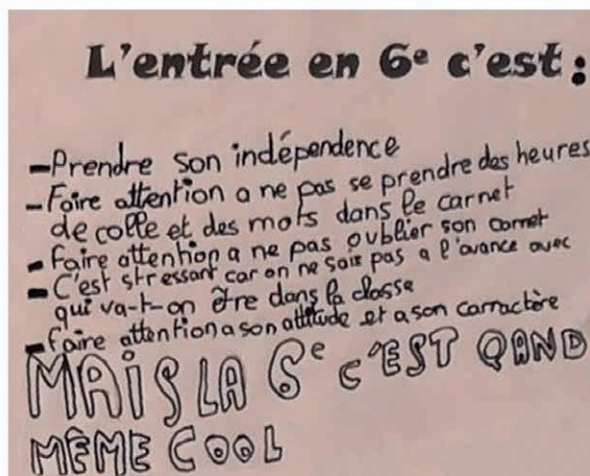 L'entrée en 6e c'est :
-Prendre son indépendence
-Faire attention a ne pas se prendre des heures
de colle et des mots dans le carnet
-Faire attention a ne pas oublier son carnet
-C'est stressant car on ne sais pas a l'avance avec
qui va-t-on être dans la classe
-Faire attention a son attitude et a son carractère
MAIS LA 6e C'EST QAND
MÊME COOL